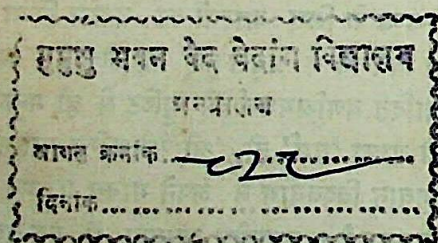 मुमुक्षु भवन वेद वेदांग विद्यालय
ग्रन्थालय
आगत क्रमांक
दिनांक........................